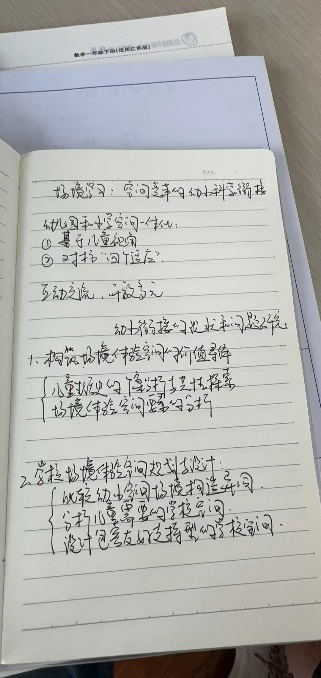 数学一年级下册(适用江苏版)
场境学习：空间变革的幼小科学衔接
幼儿园和小学空间一体化：
① 基于儿童视角
② 对标“四个适应”
互动交流，开放多元
幼小衔接的现状和问题之谈
1. 构筑场境体验空间的价值导体
儿童
场境体验空间要素的分析
2. 学校场境体验空间规划与设计：
比较幼小空间场境构造异同
分析儿童需要的学校空间.
设计包容友好支持型的学校空间.